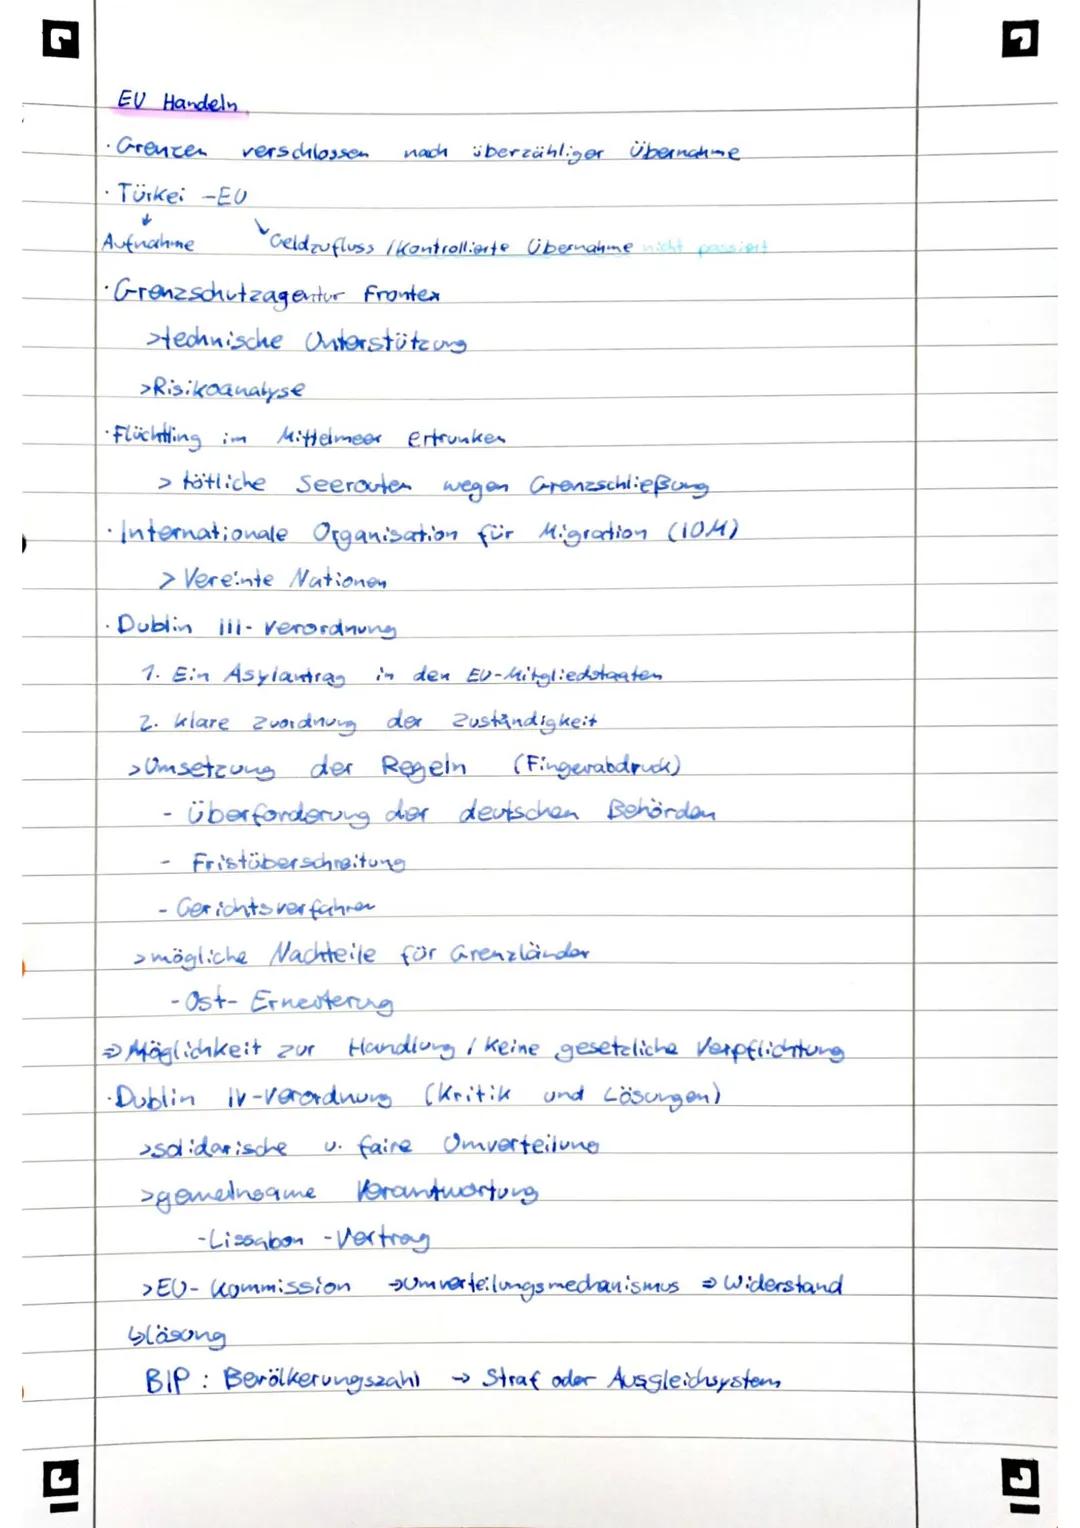 EU Handeln
· Grenzen verschlossen nach überzähliger Übernahme
· Türkei - EU
Aufnahme Geldzufluss / Kontrollierte Übernahme nicht passiert
· Grenzschutzagentur Frontex
> technische Unterstützung
> Risikoanalyse
· Flüchtling im Mittelmeer ertrunken
> tötliche Seerouten wegen Grenzschließung
· Internationale Organisation für Migration (IOM)
> Vereinte Nationen
· Dublin III - Verordnung
1. Ein Asylantrag in den EU-Mitgliedstaaten
2. klare Zuordnung der Zuständigkeit
> Umsetzung der Regeln (Fingerabdruck)
- Überforderung der deutschen Behörden
- Fristüberschreitung
- Gerichtsverfahren
> mögliche Nachteile für Grenzländer
- Ost-
⇒ Möglichkeit zur Handlung / keine gesetzliche Verpflichtung
· Dublin IV-Verordnung (Kritik und Lösungen)
> solidarische u. faire Umverteilung
> gemeinsame Verantwortung
- Lissabon - Vertrag
> EU - Kommission → Umverteilungsmechanismus ⇒ Widerstand
↳ Lösung
BIP : Bevölkerungszahl → Straf oder Ausgleichsystem